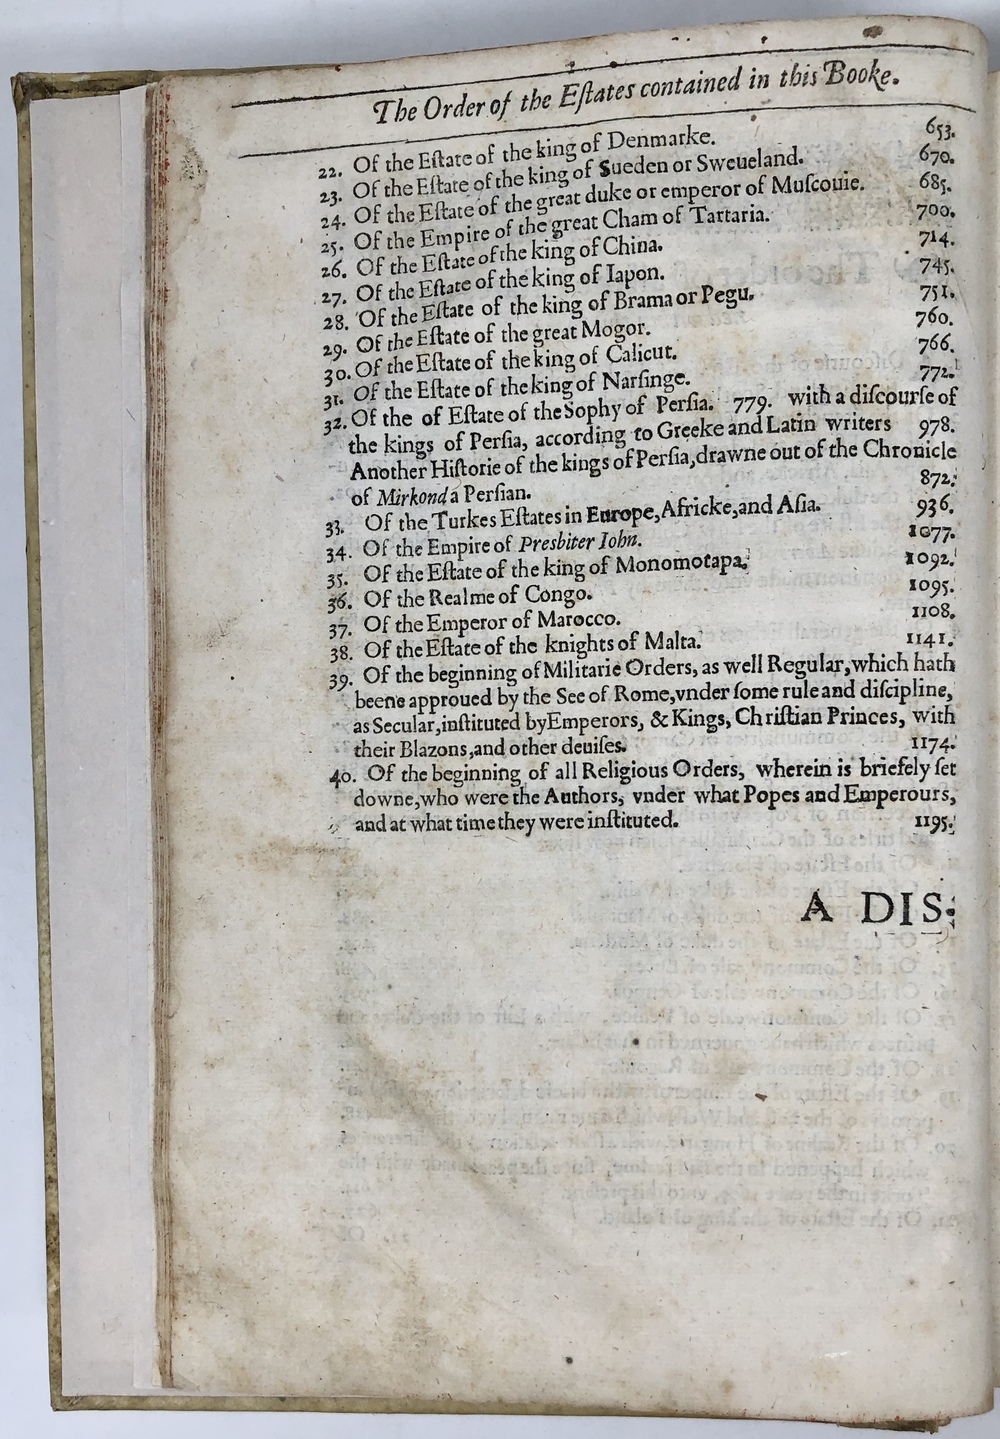 The Order of the Eſtates contained in this Booke.
22. Of the Eſtate of the king of Denmarke. 653.
23. Of the Eſtate of the king of Sueden or Sweueland. 670.
24. Of the Eſtate of the great duke or emperor of Muſcouie. 685.
25. Of the Empire of the great Cham of Tartaria. 700.
26. Of the Eſtate of the king of China. 714.
27. Of the Eſtate of the king of Iapon. 745.
28. Of the Eſtate of the king of Brama or Pegu. 751.
29. Of the Eſtate of the great Mogor. 760.
30. Of the Eſtate of the king of Calicut. 766.
31. Of the Eſtate of the king of Narſinge. 772.
32. Of the of Eſtate of the Sophy of Perſia. 779. with a diſcourſe of
the kings of Perſia, according to Greeke and Latin writers 978.
Another Hiſtorie of the kings of Perſia, drawne out of the Chronicle
of Mirkond a Perſian. 872.
33. Of the Turkes Eſtates in Europe, Africke, and Aſia. 936.
34. Of the Empire of Presbiter Iohn. 1077.
35. Of the Eſtate of the king of Monomotapa. 1092.
36. Of the Realme of Congo. 1095.
37. Of the Emperor of Marocco. 1108.
38. Of the Eſtate of the knights of Malta. 1141.
39. Of the beginning of Militarie Orders, as well Regular, which hath
beene approued by the See of Rome, vnder ſome rule and diſcipline,
as Secular, inſtituted by Emperors, & Kings, Chriſtian Princes, with
their Blazons, and other deuiſes. 1174.
40. Of the beginning of all Religious Orders, wherein is briefely ſet
downe, who were the Authors, vnder what Popes and Emperours,
and at what time they were inſtituted. 1195.
A DIS-